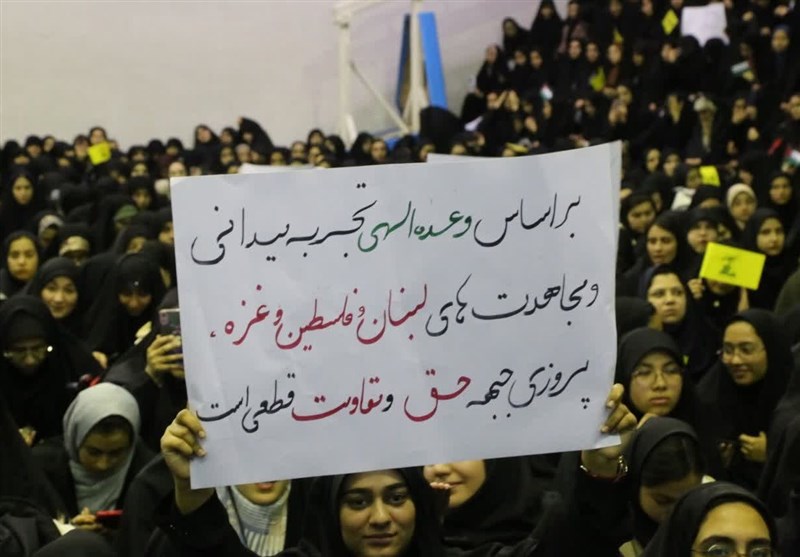 بر اساس وعده الهی تجربه میدانی
و مجاهدت های لبنان و فلسطین و غزه،
پیروزی جبهه حق و مقاومت قطعی است